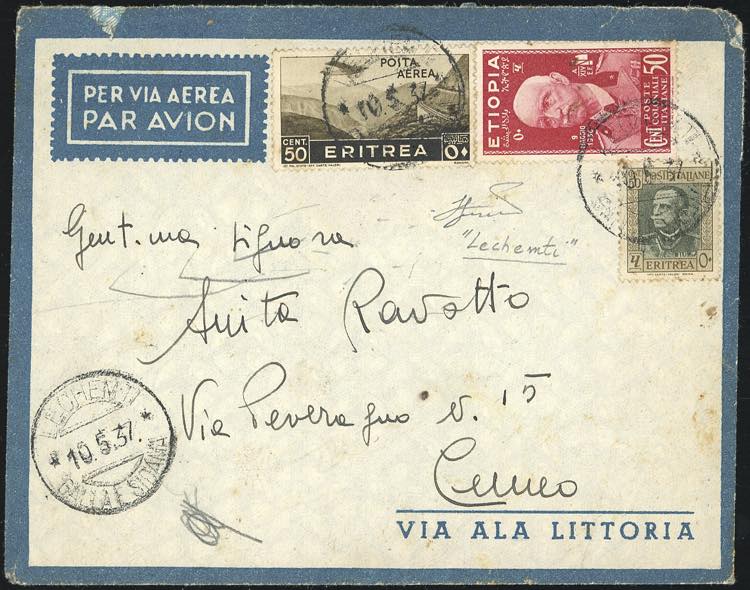 PER VIA AEREA
PAR AVION
POSTA
AEREA
CENT.
50
ERITREA
10.5.37
ETIOPIA
POSTE
COLONIALI
ITALIANE
CENT 50
9
MAGGIO
1936
A.
XIV
E.F.
POSTE ITALIANE
50
ERITREA
"Lechemti"
Gent.ma Signora
Anita Ravotto
Via Peveragno N. 15
Cuneo
LECHEMTI
* 10.5.37. *
GALLA E SIDAMA
VIA ALA LITTORIA